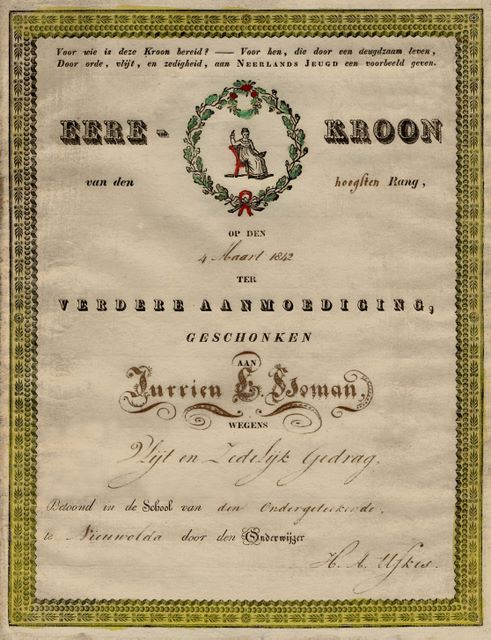 Voor wie is deze Kroon bereid? — Voor hen, die door een deugdzaam leven,
Door orde, vlijt, en zedigheid, aan NEERLANDS JEUGD een voorbeeld geven.
EERE - KROON
van den hoogsten Rang,
OP DEN
4 Maart 1842
TER
VERDERE AANMOEDIGING,
GESCHONKEN
AAN
Jurrien E. Homan,
WEGENS
Vlijt en Zedelijk Gedrag.
Betoond in de School van den Ondergeteekende,
te Nieuwolda door den Onderwijzer
H. A. Uskes.